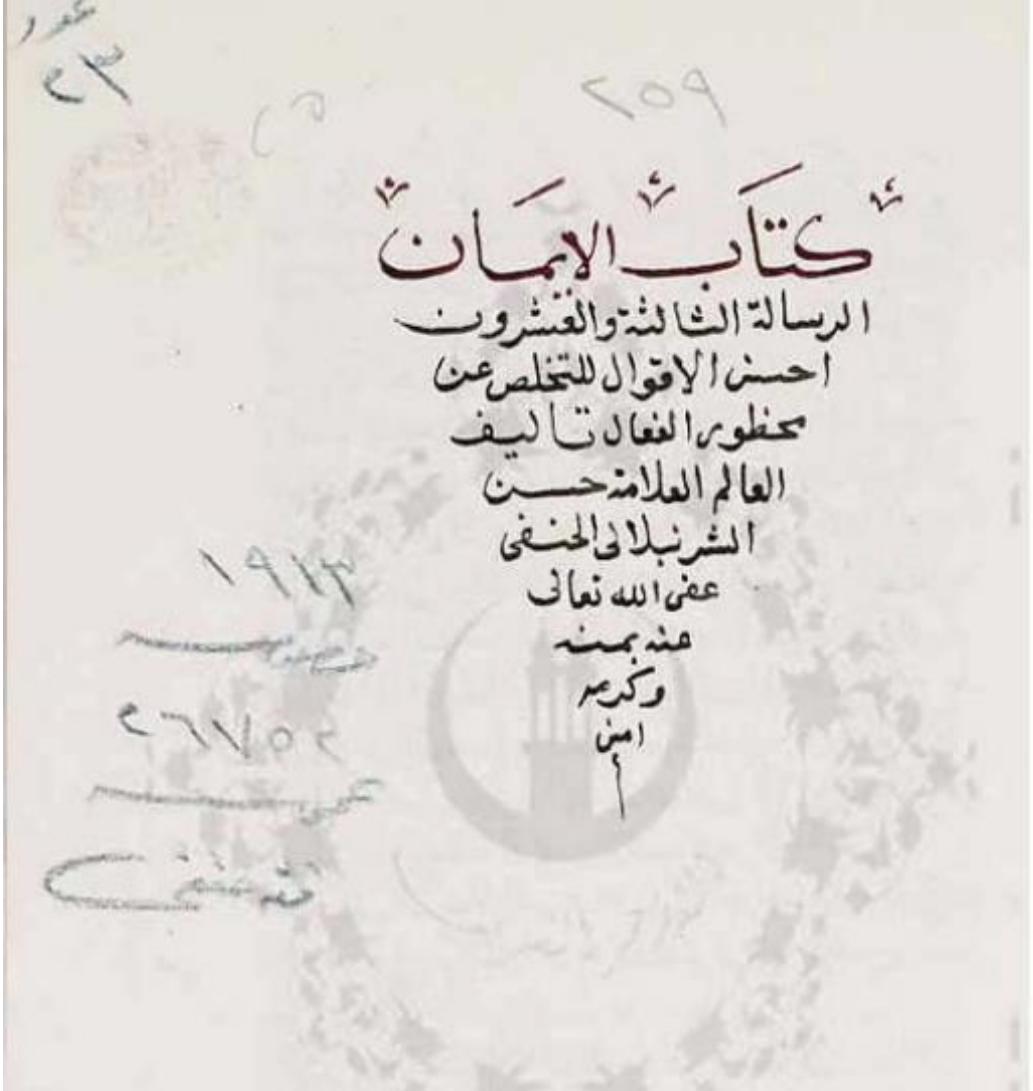 ٢٣
٢٥٩
كتاب الايمان
الرسالة الثالثة والعشرون
احسن الاقوال للتخلص عن
محظور الفعال تاليف
العالم العلامة حسن
الشرنبلالى الحنفى
عفى الله تعالى
عنه بمنه
وكرمه
امين
١٩١٣
خصوصيه
٢٥٧٦٢
عموميه
فقه حنفى